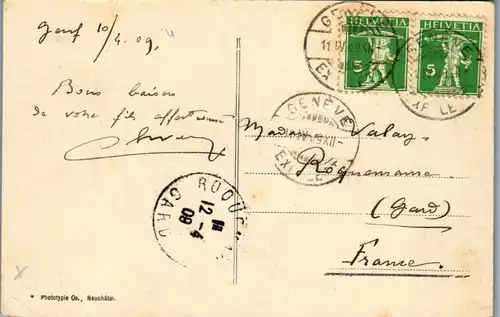 Genf 10/4. 09.
Bons baisers
de votre fils affectionné
HELVETIA HELVETIA
5 5
GENÈVE
EXP. LE
GENÈVE
EXP. LE
Madame Valay
Roquemaure
(Gard)
France.
ROQUE
12 -4
09
GARD
* Phototypie Co., Neuchâtel.